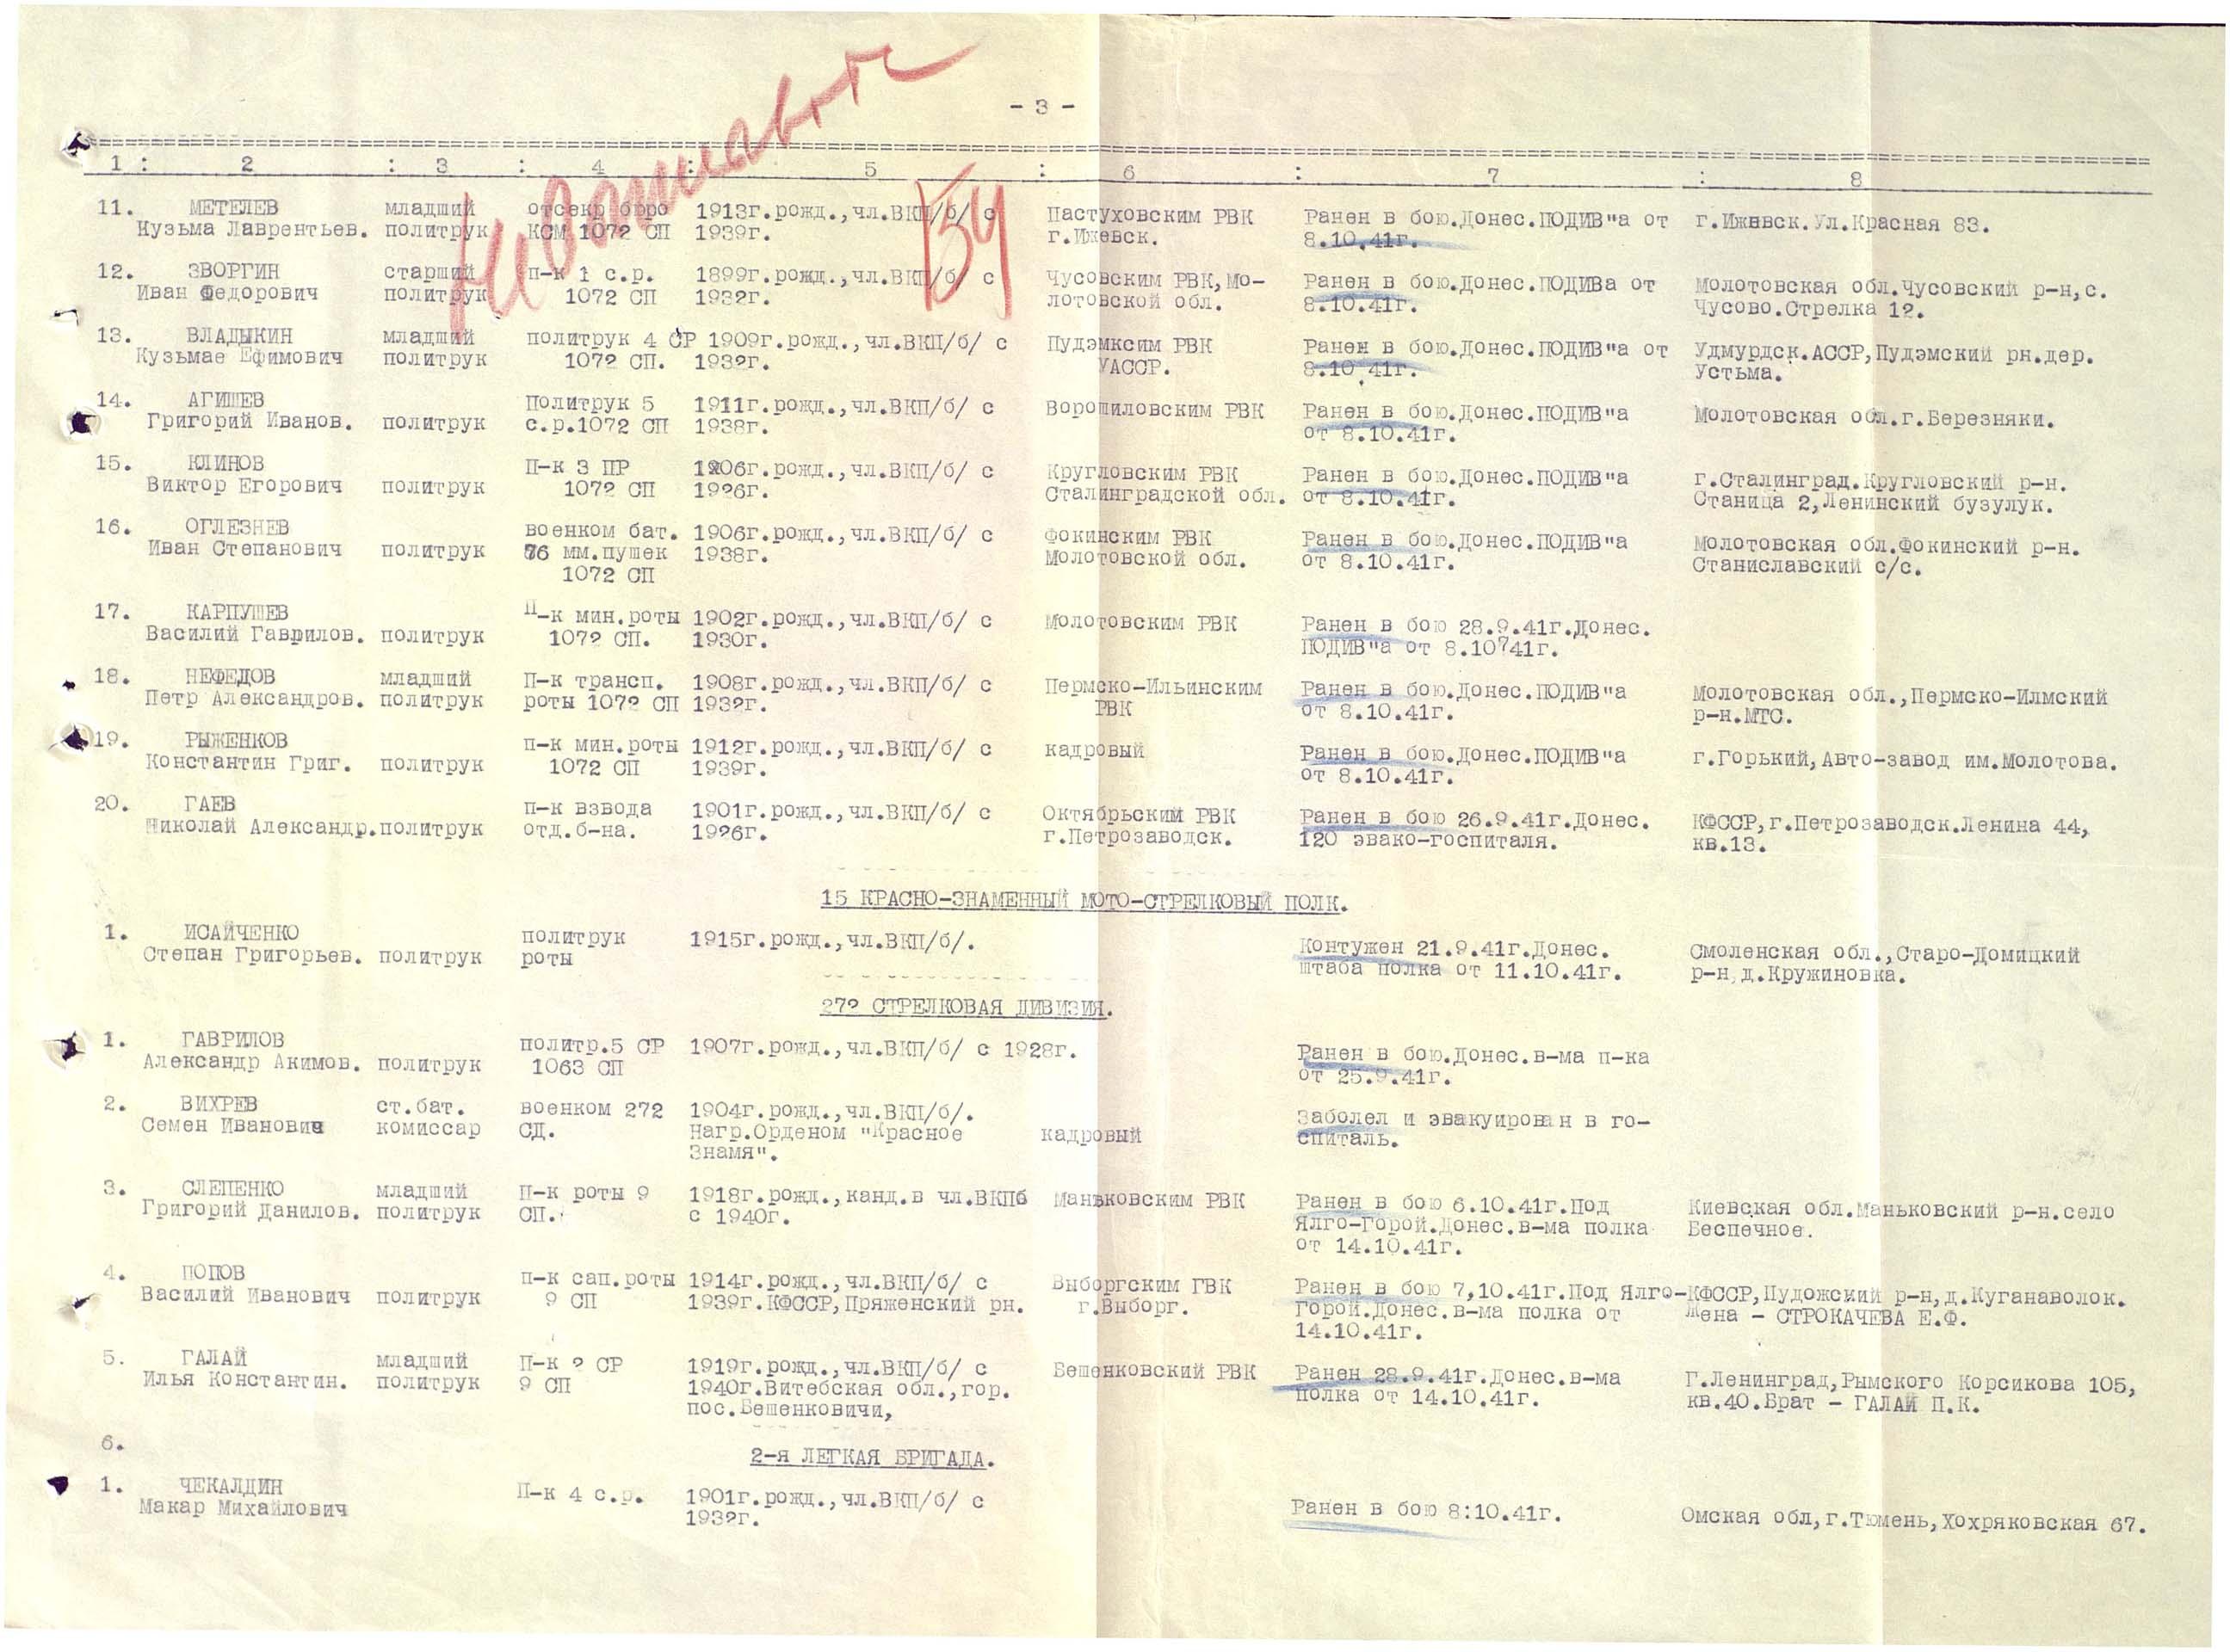 - 3 -
1 : 2 : 3 : 4 : 5 : 6 : 7 : 8
154
11. МЕТЕЛЕВ младший отсекр бюро 1913г.рожд.,чл.ВКП/б/ с Пастуховским РВК Ранен в бою.Донес.ПОДИВ"а от г.Ижевск.Ул.Красная 83.
Кузьма Лаврентьев. политрук КСМ 1072 СП 1939г. г.Ижевск. 8.10.41г.
12. ЗВОРГИН старший п-к 1 с.р. 1899г.рожд.,чл.ВКП/б/ с Чусовским РВК,Мо- Ранен в бою.Донес.ПОДИВа от Молотовская обл.Чусовский р-н,с.
Иван Федорович политрук 1072 СП 1932г. лотовской обл. 8.10.41г. Чусово.Стрелка 12.
13. ВЛАДЫКИН младший политрук 4 СР 1909г.рожд.,чл.ВКП/б/ с Пудэмксим РВК Ранен в бою.Донес.ПОДИВ"а от Удмурдск.АССР,Пудэмский рн.дер.
Кузьмае Ефимович политрук 1072 СП. 1932г. УАССР. 8.10.41г. Устьма.
14. АГИШЕВ Политрук 5 1911г.рожд.,чл.ВКП/б/ с Ворошиловским РВК Ранен в бою.Донес.ПОДИВ"а Молотовская обл.г.Березняки.
Григорий Иванов. политрук с.р.1072 СП 1938г. от 8.10.41г.
15. КЛИНОВ П-к 3 ПР 1906г.рожд.,чл.ВКП/б/ с Кругловским РВК Ранен в бою.Донес.ПОДИВ"а г.Сталинград.Кругловский р-н.
Виктор Егорович политрук 1072 СП 1926г. Сталинградской обл. от 8.10.41г. Станица 2,Ленинский бузулук.
16. ОГЛЕЗНЕВ военком бат. 1906г.рожд.,чл.ВКП/б/ с Фокинским РВК Ранен в бою.Донес.ПОДИВ"а Молотовская обл.Фокинский р-н.
Иван Степанович политрук 76 мм.пушек 1938г. Молотовской обл. от 8.10.41г. Станиславский с/с.
1072 СП
17. КАРПУШЕВ П-к мин.роты 1902г.рожд.,чл.ВКП/б/ с Молотовским РВК Ранен в бою 28.9.41г.Донес.
Василий Гаврилов. политрук 1072 СП. 1930г. ПОДИВ"а от 8.10741г.
18. НЕФЕДОВ младший П-к трансп. 1908г.рожд.,чл.ВКП/б/ с Пермско-Ильинским Ранен в бою.Донес.ПОДИВ"а Молотовская обл.,Пермско-Илмский
Петр Александров. политрук роты 1072 СП 1932г. РВК от 8.10.41г. р-н.МТС.
19. РЫЖЕНКОВ п-к мин.роты 1912г.рожд.,чл.ВКП/б/ с кадровый Ранен в бою.Донес.ПОДИВ"а г.Горький,Авто-завод им.Молотова.
Константин Григ. политрук 1072 СП 1939г. от 8.10.41г.
20. ГАЕВ п-к взвода 1901г.рожд.,чл.ВКП/б/ с Октябрьским РВК Ранен в бою 26.9.41г.Донес. КФССР,г.Петрозаводск.Ленина 44,
Николай Александр.политрук отд.б-на. 1926г. г.Петрозаводск. 120 эвако-госпиталя. кв.13.
15 КРАСНО-ЗНАМЕННЫЙ МОТО-СТРЕЛКОВЫЙ ПОЛК.
1. ИСАЙЧЕНКО политрук 1915г.рожд.,чл.ВКП/б/. Контужен 21.9.41г.Донес. Смоленская обл.,Старо-Домицкий
Степан Григорьев. политрук роты штаба полка от 11.10.41г. р-н,д.Кружиновка.
272 СТРЕЛКОВАЯ ДИВИЗИЯ.
1. ГАВРИЛОВ политр.5 СР 1907г.рожд.,чл.ВКП/б/ с 1928г. Ранен в бою.Донес.в-ма п-ка
Александр Акимов. политрук 1063 СП от 25.9.41г.
2. ВИХРЕВ ст.бат. военком 272 1904г.рожд.,чл.ВКП/б/. Заболел и эвакуирован в го-
Семен Иванович комиссар СД. Нагр.Орденом "Красное кадровый спиталь.
Знамя".
3. СЛЕПЕНКО младший П-к роты 9 1918г.рожд.,канд.в чл.ВКПб Маньковским РВК Ранен в бою 6.10.41г.Под Киевская обл.Маньковский р-н.село
Григорий Данилов. политрук СП. с 1940г. Ялго-Горой.Донес.в-ма полка Беспечное.
от 14.10.41г.
4. ПОПОВ п-к сап.роты 1914г.рожд.,чл.ВКП/б/ с Выборгским ГВК Ранен в бою 7,10.41г.Под Ялго-КФССР,Пудожский р-н,д.Куганаволок.
Василий Иванович политрук 9 СП 1939г.КФССР,Пряженский рн. г.Выборг. Горой.Донес.в-ма полка от Жена - СТРОКАЧЕВА Е.Ф.
14.10.41г.
5. ГАЛАЙ младший П-к 2 СР 1919г.рожд.,чл.ВКП/б/ с Бешенковский РВК Ранен 28.9.41г.Донес.в-ма Г.Ленинград,Рымского Корсикова 105,
Илья Константин. политрук 9 СП 1940г.Витебская обл.,гор. полка от 14.10.41г. кв.40.Брат - ГАЛАЙ П.К.
пос.Бешенковичи,
6.
2-я ЛЕГКАЯ БРИГАДА.
1. ЧЕКАЛДИН П-к 4 с.р. 1901г.рожд.,чл.ВКП/б/ с Ранен в бою 8:10.41г. Омская обл,г.Тюмень,Хохряковская 67.
Макар Михайлович 1932г.